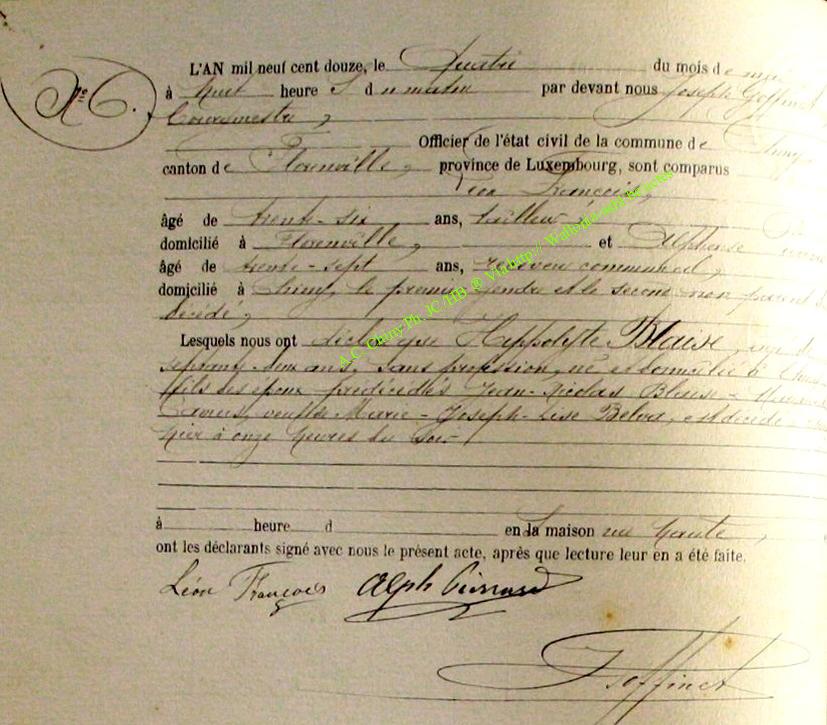 N° 6.
L'AN mil neuf cent douze, le quatre du mois de mai
à huit heures du matin par devant nous Joseph Goffinet
Bourgmestre,
Officier de l'état civil de la commune de Chiny,
canton de Florenville, province de Luxembourg, sont comparus
Léon François,
âgé de trente-six ans, tailleur
domicilié à Florenville, et Alphonse
âgé de trente-sept ans, receveur communal,
domicilié à Chiny, le premier gendre et le second non parent
décédé,
Lesquels nous ont déclaré que Hippolyte Blaise, âgé de
septante-deux ans, sans profession, né et domicilié à Chiny
fils des époux prédécédés Jean-Nicolas Blaise-
veuf de Marie-Joseph-Lise Belva, est décédé
hier à onze heures du soir
à heure d en la maison rue Haute,
ont les déclarants signé avec nous le présent acte, après que lecture leur en a été faite.
Léon François Alph
JGoffinet
A.C. Chiny Ph. JC/HB @ Via http://